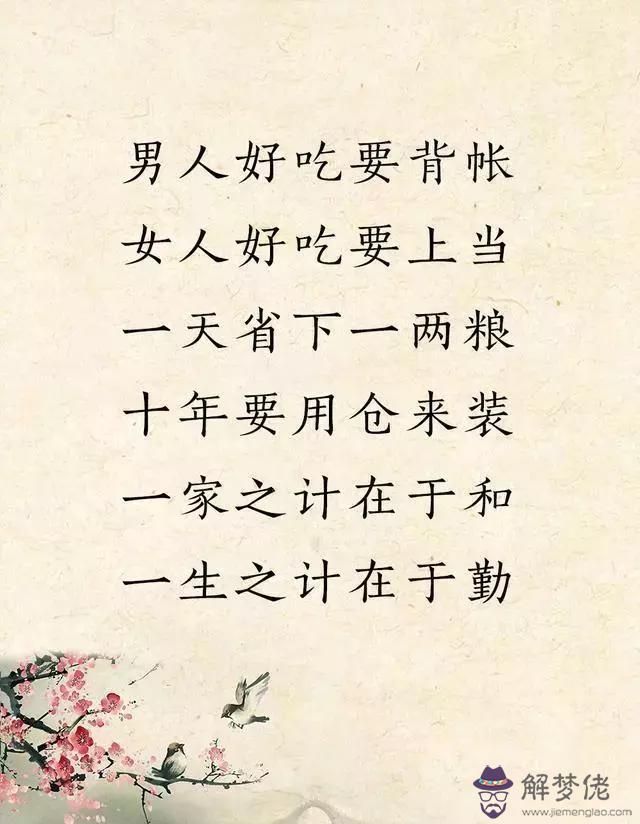 男人好吃要背帐
女人好吃要上当
一天省下一两粮
十年要用仓来装
一家之计在于和
一生之计在于勤
解梦佬
www.jiemenglao.com